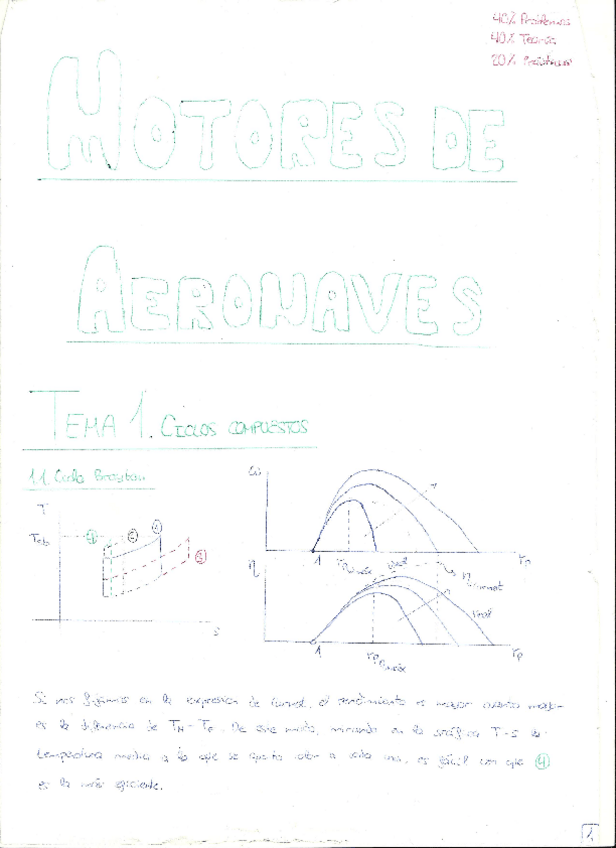 40% Problemas
40% Teoría
20% Prácticas
MOTORES DE
AERONAVES
TEMA 1. CICLOS COMPUESTOS
1.1. Ciclo Brayton
T
S
ω
1
rp
η
1
rp
Si nos fijamos en la expresión de Carnot, el rendimiento es mayor cuanto mayor
es la diferencia de
De este modo, mirando en la gráfica T-S la
temperatura media a la que se aporta calor a cada uno, es fácil ver que 4
es la más eficiente.
1